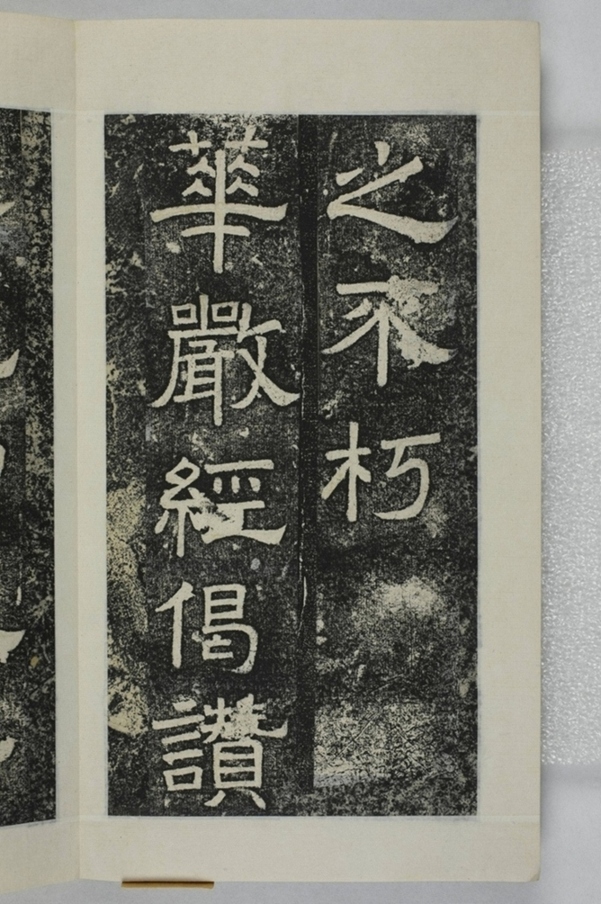 之不朽
華嚴經偈讚